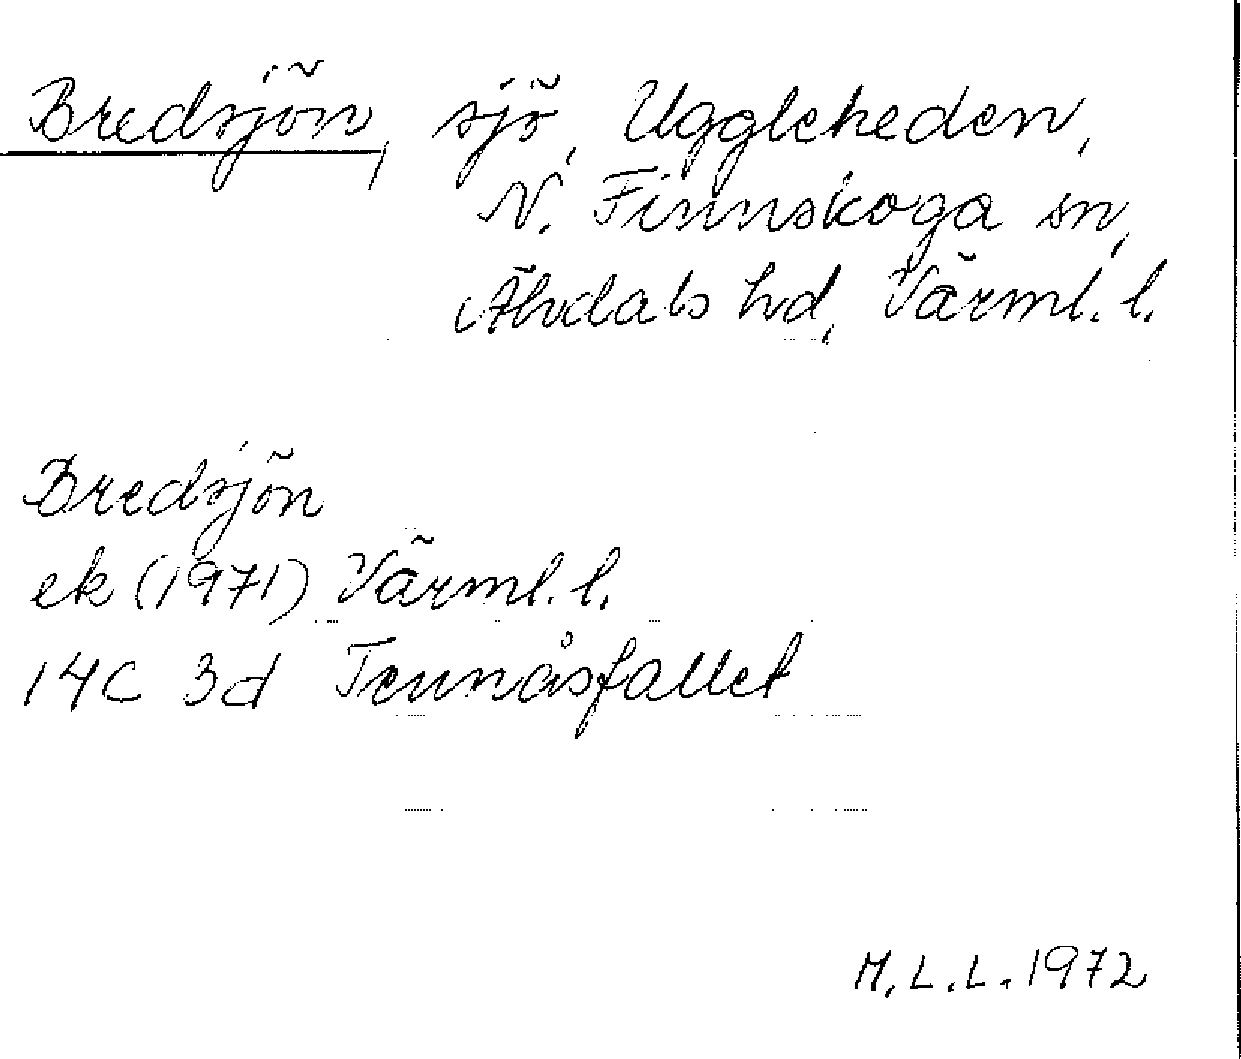 Bredsjön, sjö, Uggleheden,
N. Finnskoga sn,
Älvdals hd, Värml. l.
Bredsjön
ek (1971) Värml. l.
14C 3d Tennåsfallet
M.L.L. 1972